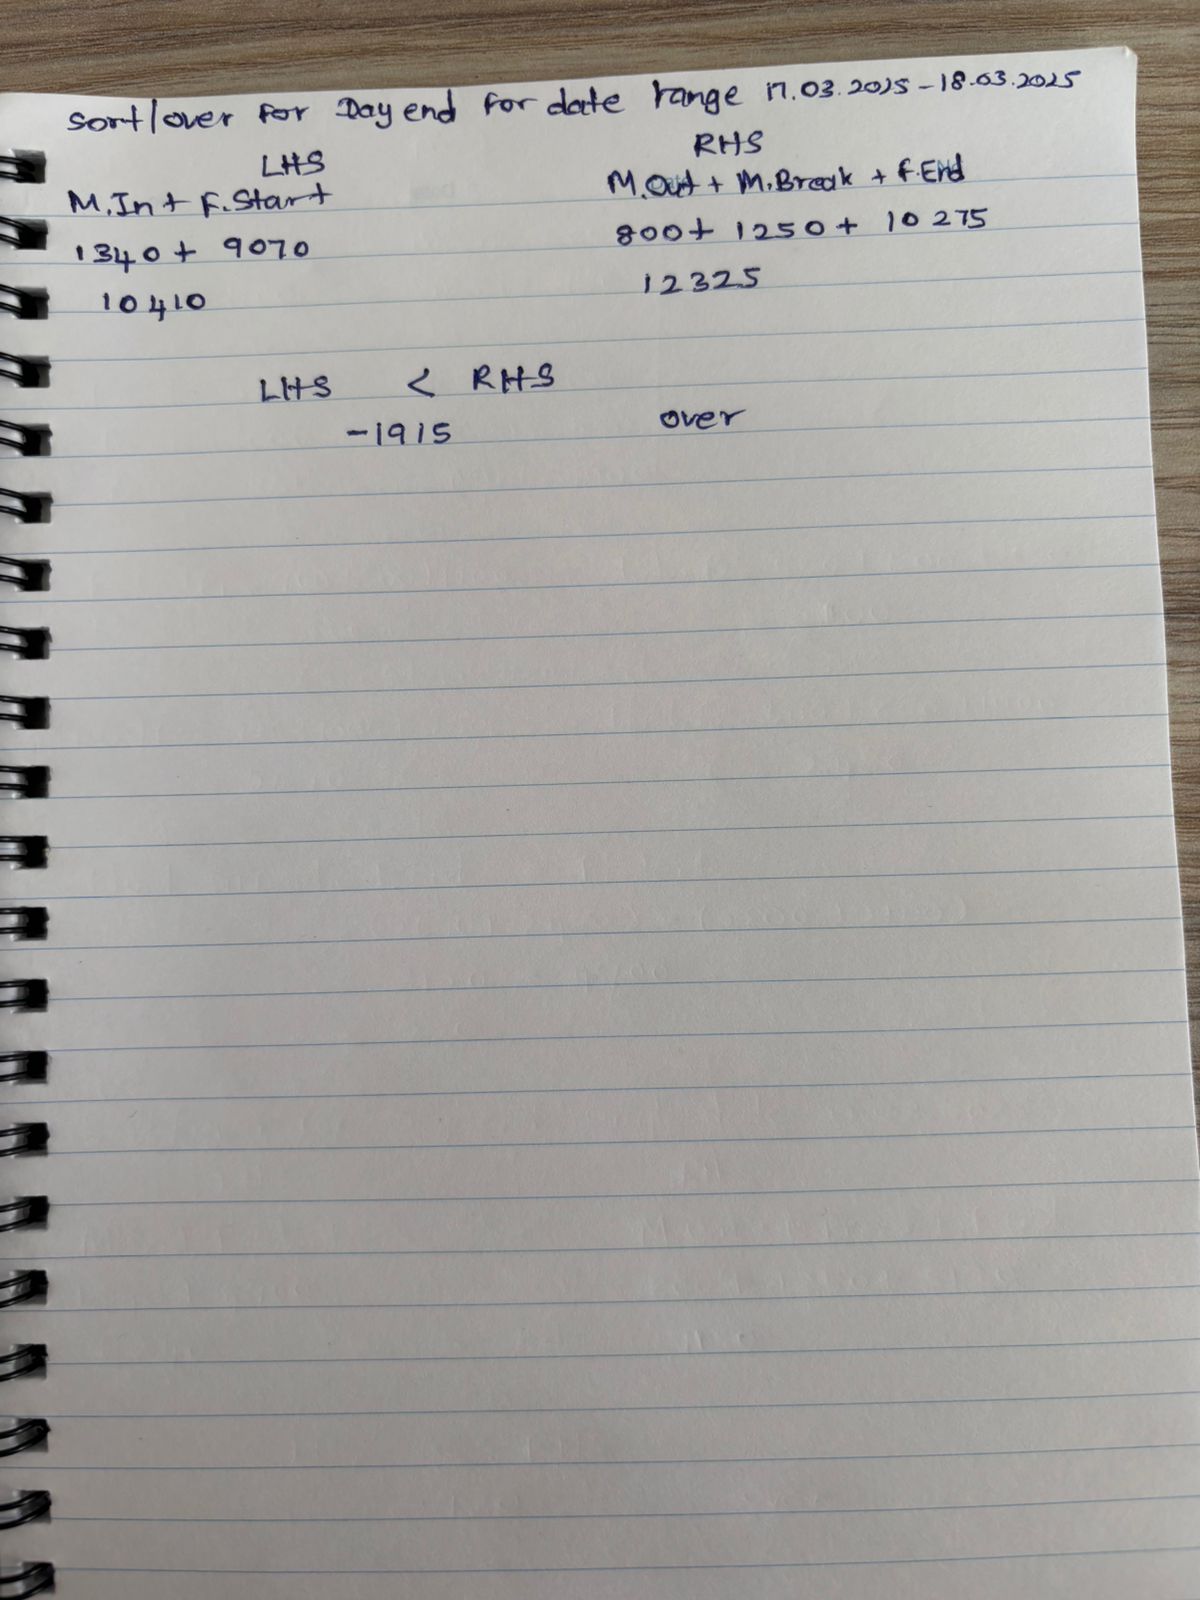 sort/over for Day end for date range 17.03.2025 - 18.03.2025
LHS RHS
M.In + F.Start M.Out + M.Break + F.End
1340 + 9070 800 + 1250 + 10275
10410 12325
LHS < RHS
-1915 over